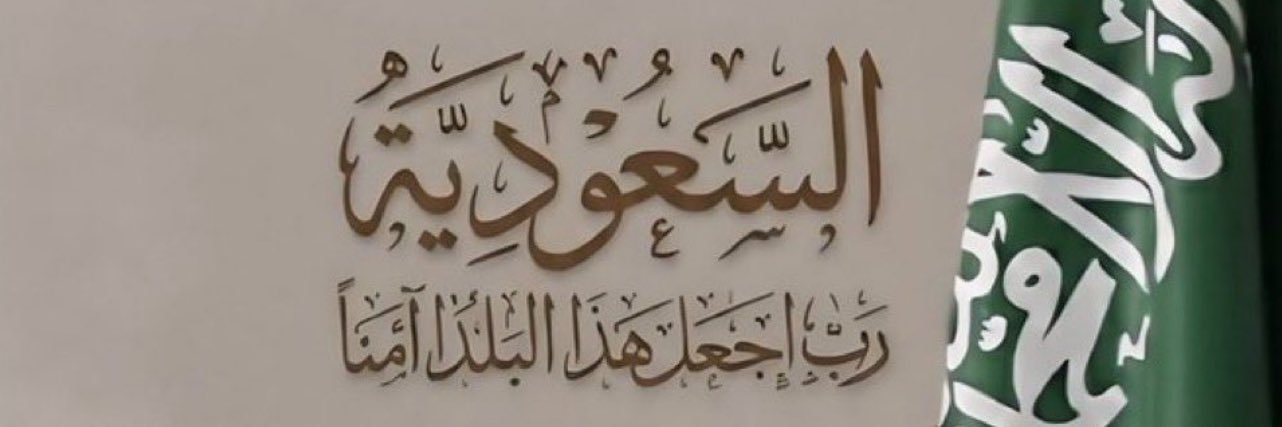 السَّعُوْدِيَّةُ
رَبِّ إِجعَل هَذَا البَلَدا آمَنَاً